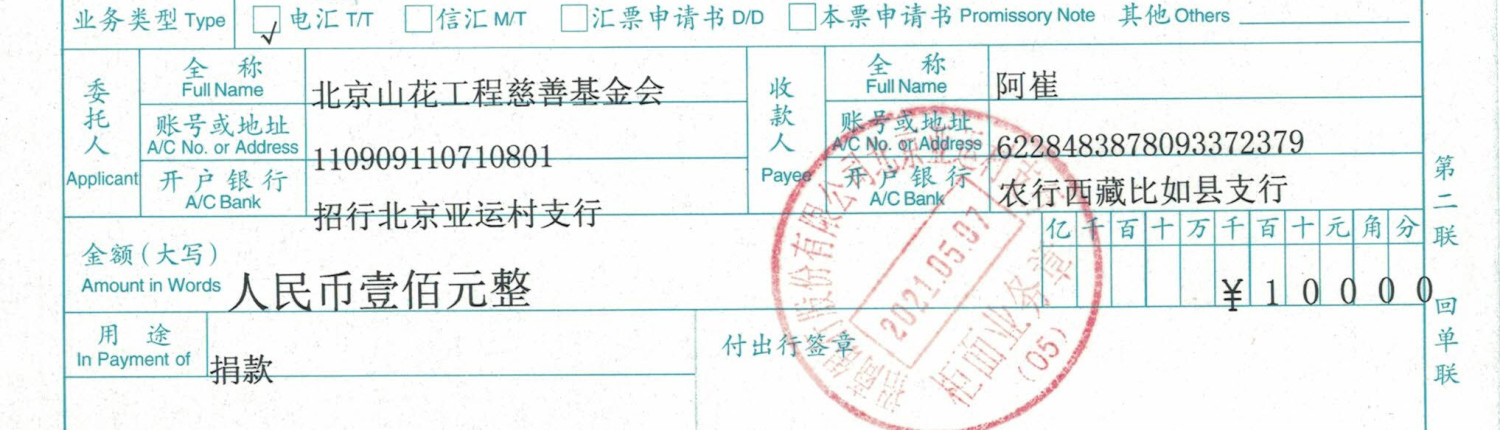 业务类型 Type 电汇 T/T 信汇 M/T 汇票申请书 D/D 本票申请书 Promissory Note 其他 Others
委托人 Applicant
全称 Full Name 北京山花工程慈善基金会
账号或地址 A/C No. or Address 110909110710801
开户银行 A/C Bank 招行北京亚运村支行
收款人 Payee
全称 Full Name 阿崔
账号或地址 A/C No. or Address 6228483878093372379
开户银行 A/C Bank 农行西藏比如县支行
金额(大写) Amount in Words 人民币壹佰元整
亿千百十万千百十元角分
¥10000
用途 In Payment of 捐款
付出行签章
股份有限公司北京亚运村支
2021.05.07
柜面业务章
(05)
第二联 回单联